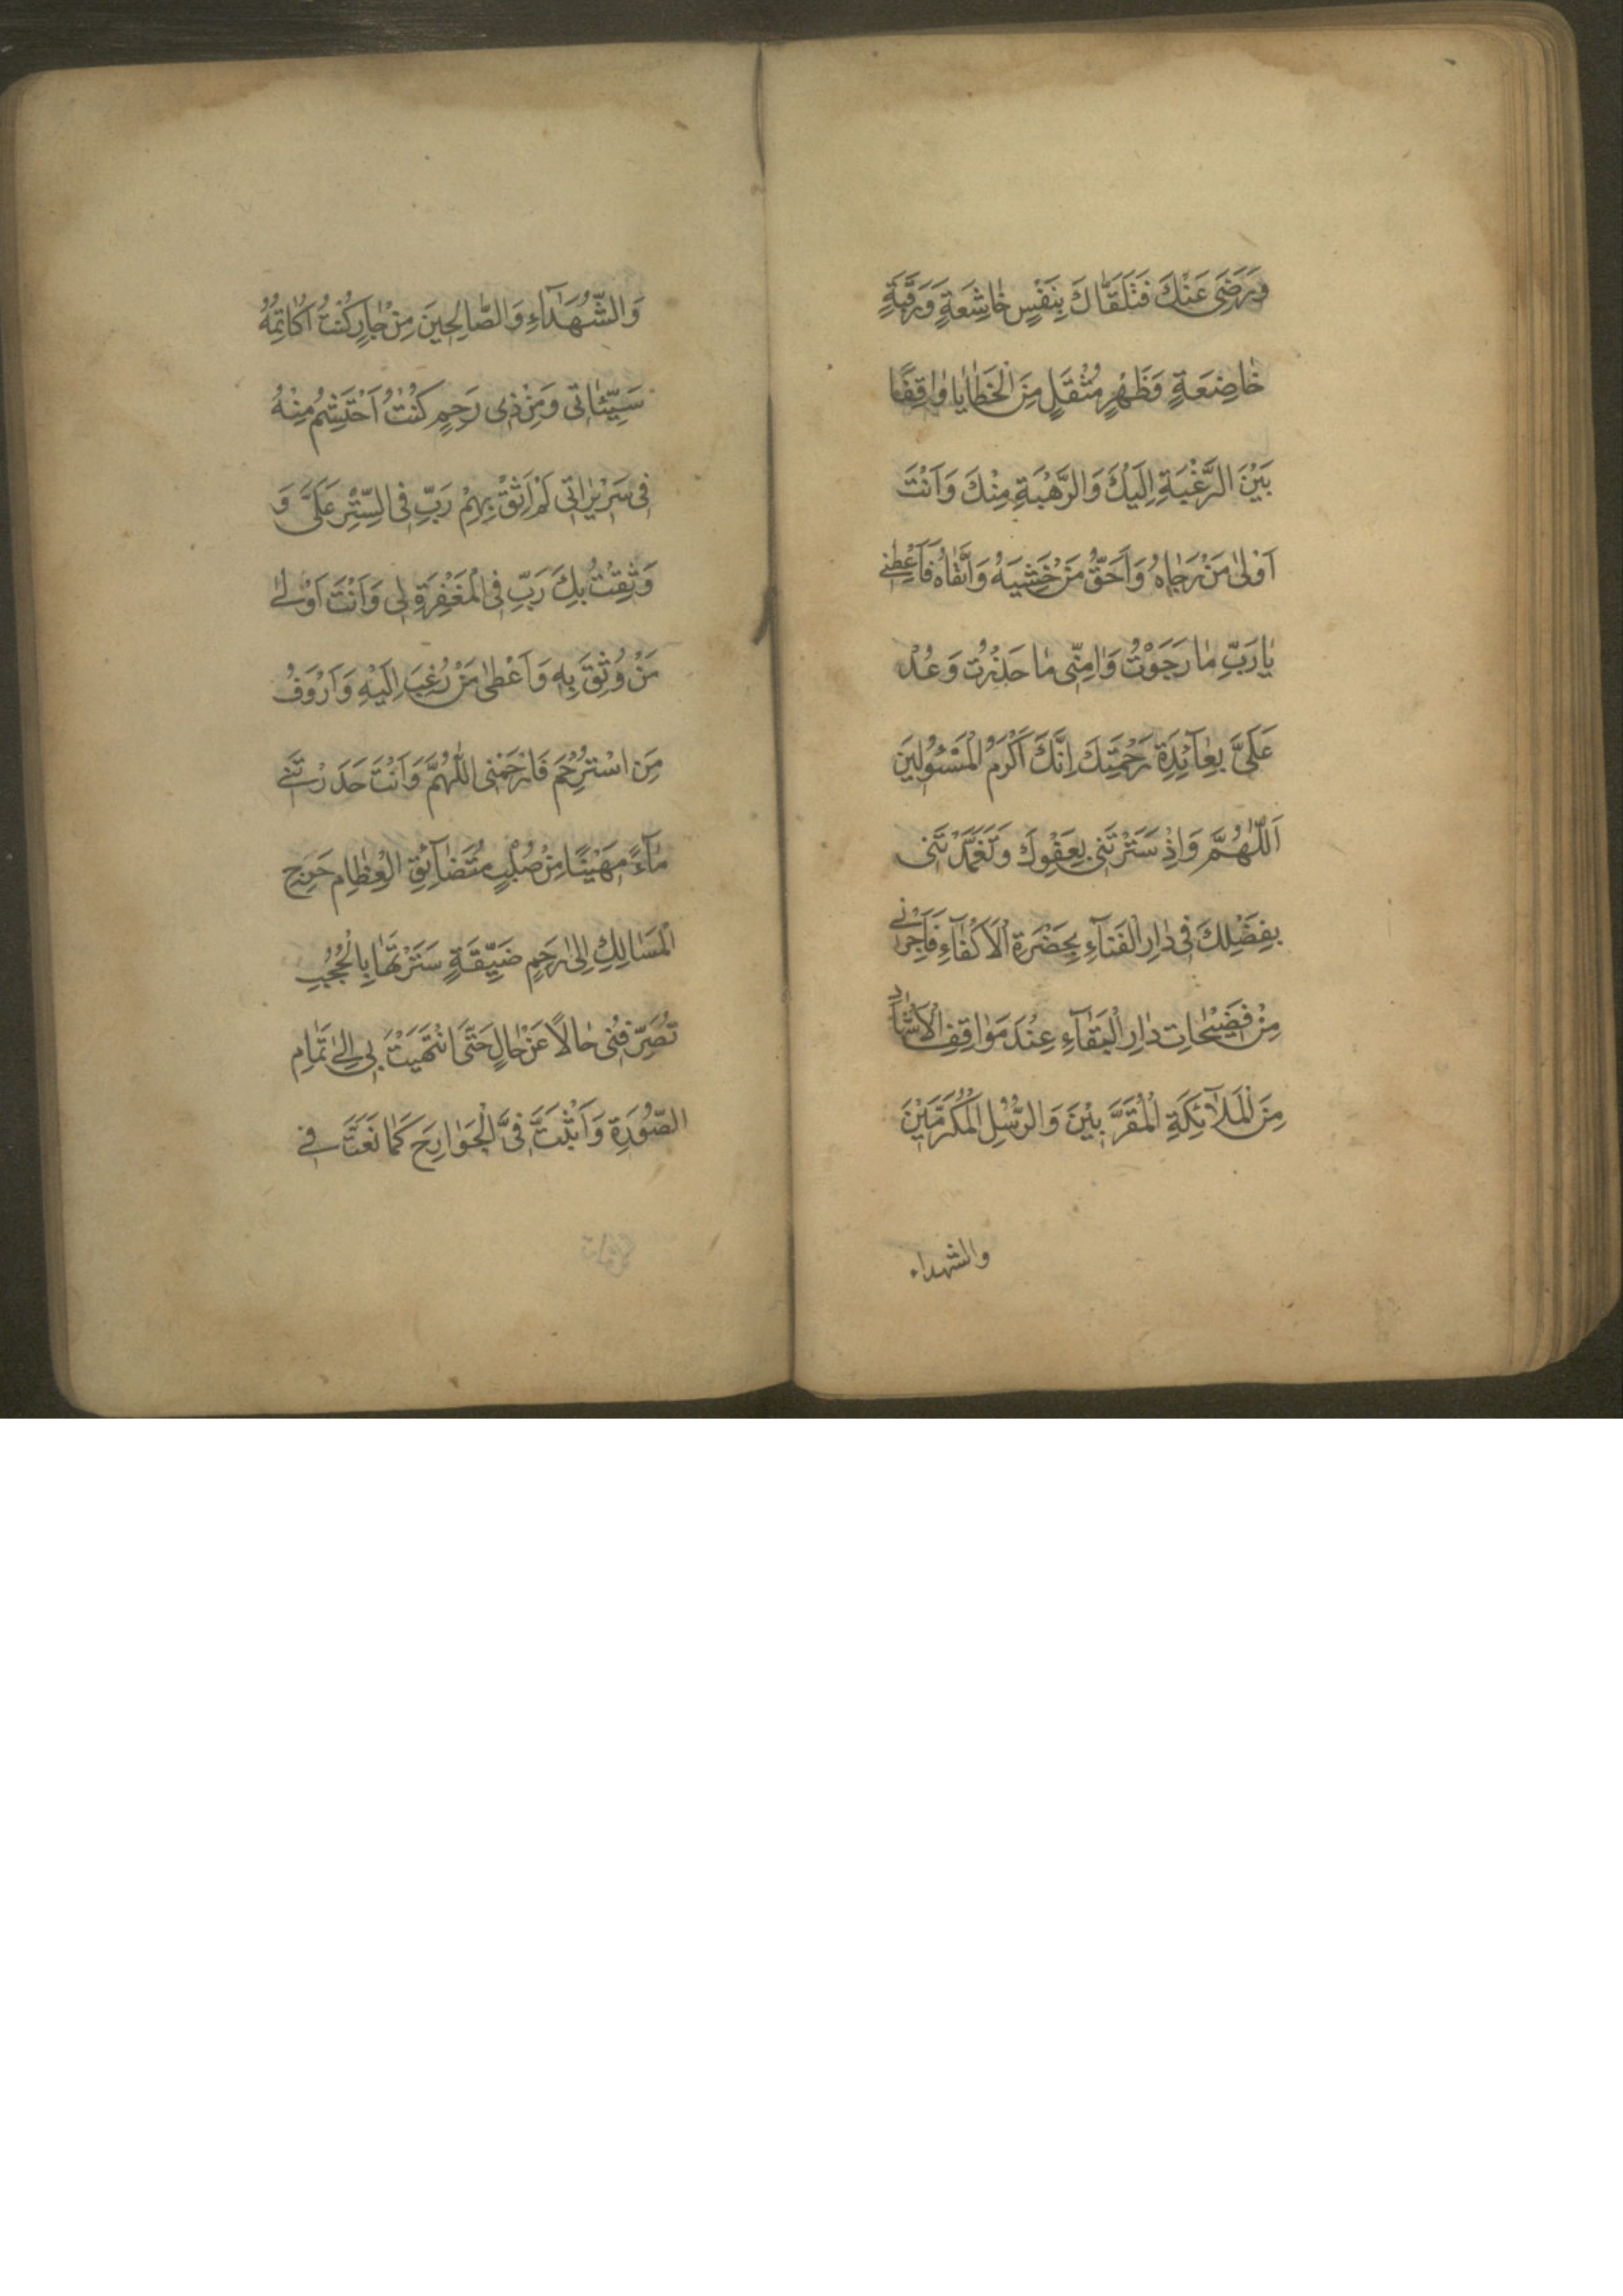 وَرَضِىَ عَنْكَ فَتَلَقَّاكَ بِنَفْسٍ خَاشِعَةٍ وَرَقَبَةٍ
خَاضِعَةٍ وَظَهْرٍ مُثْقَلٍ مِنَ الْخَطَايَا وَاقِفًا
بَيْنَ الرَّغْبَةِ اِلَيْكَ وَالرَّهْبَةِ مِنْكَ وَاَنْتَ
اَوْلٰى مَنْ رَجَاهُ وَاَحَقُّ مَنْ خَشِيَهُ وَاتَّقَاهُ فَاَعْطِنِى
يَا رَبِّ مَا رَجَوْتُ وَاٰمِنِّى مَا حَذِرْتُ وَعُدْ
عَلَىَّ بِعَآئِدَةِ رَحْمَتِكَ اِنَّكَ اَكْرَمُ الْمَسْئُولِينَ
اَللّٰهُمَّ وَاِذْ سَتَرْتَنِى بِعَفْوِكَ وَتَغَمَّدْتَنِى
بِفَضْلِكَ فِى دَارِ الْفَنَآءِ بِحَضْرَةِ الْاَكْفَآءِ فَاَجِرْنِى
مِنْ فَضِيحَاتِ دَارِ الْبَقَآءِ عِنْدَ مَوَاقِفِ الْاَشْهَادِ
مِنَ الْمَلَآئِكَةِ الْمُقَرَّبِيْنَ وَالرُّسُلِ الْمُكَرَّمَيْنَ
والشهداء
وَالشُّهَدَآءِ وَالصَّالِحِينَ مِنْ جَارٍ كُنْتُ اُكَاتِمُهُ
سَيِّئَاتِى وَمِنْ ذِى رَحِمٍ كُنْتُ اَحْتَشِمُ مِنْهُ
فِى سَرِيرَاتِى لَمْ اَثِقْ بِهِمْ رَبِّ فِى السِّتْرِ عَلَىَّ وَ
وَثِقْتُ بِكَ رَبِّ فِى الْمَغْفِرَةِ لِى وَاَنْتَ اَوْلٰى
مَنْ وُثِقَ بِهِ وَاَعْطٰى مَنْ رُغِبَ اِلَيْهِ وَاَرْوَفُ
مَنِ اسْتُرْحِمَ فَارْحَمْنِى اللّٰهُمَّ وَاَنْتَ حَدَرْتَنِى
مَآءً مَهْيِنًا مِنْ صُلْبٍ مُتَضَآئِقِ الْعِظَامِ حَرِجِ
الْمَسَالِكِ اِلٰى رَحِمٍ ضَيِّقَةٍ سَتَرْتَهَا بِالْحُجُبِ
تُصَرِّفُنِى حَالًا عَنْ حَالٍ حَتّٰى انْتَهَيْتَ بِى اِلٰى تَمَامِ
الصُّوْرَةِ وَاَثْبَتَّ فِىَّ الْجَوَارِحَ كَمَا نَعَتَّ فِى